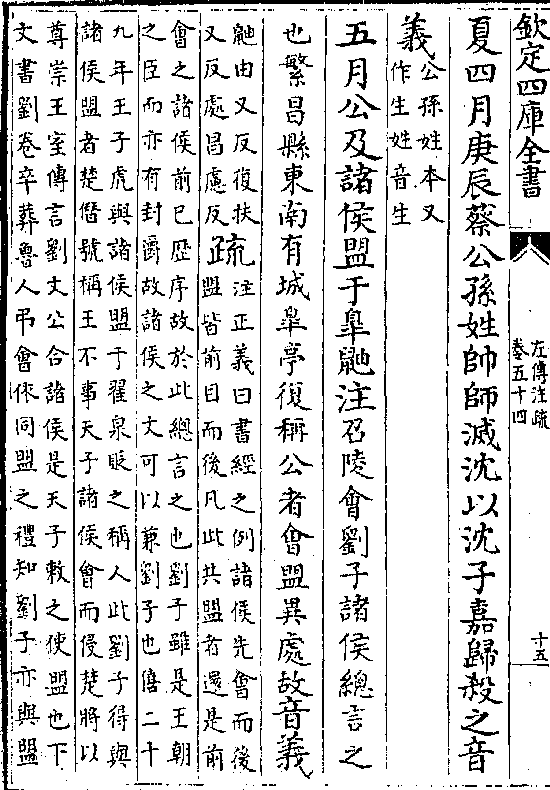 欽定四庫全書
左傳注疏
卷五十四
十五
夏四月庚辰蔡公孫姓帥師滅沈以沈子嘉歸殺之音
義公孫姓本又
作生姓音生
五月公及諸侯盟于臯鼬注召陵會劉子諸侯總言之
也繁昌縣東南有城臯亭復稱公者會盟異處故音義
鼬由又反復扶
又反處昌慮反疏注正義曰書經之例諸侯先會而後
盟皆前目而後凡此共盟者還是前
會之諸侯前已歴序故於此總言之也劉子雖是王朝
之臣而亦有封爵故諸侯之文可以兼劉子也僖二十
九年王子虎與諸侯盟于翟泉貶之稱人此劉子得與
諸侯盟者楚僭號稱王不事天子諸侯會而侵楚將以
尊崇王室傳言劉文公合諸侯是天子敕之使盟也下
文書劉卷卒葬魯人弔會依同盟之禮知劉子亦與盟